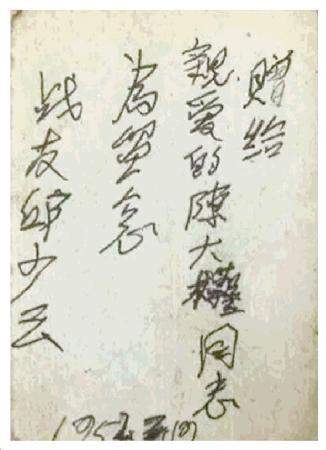 贈给
親爱的陳大同志
為留念
战友邱少云